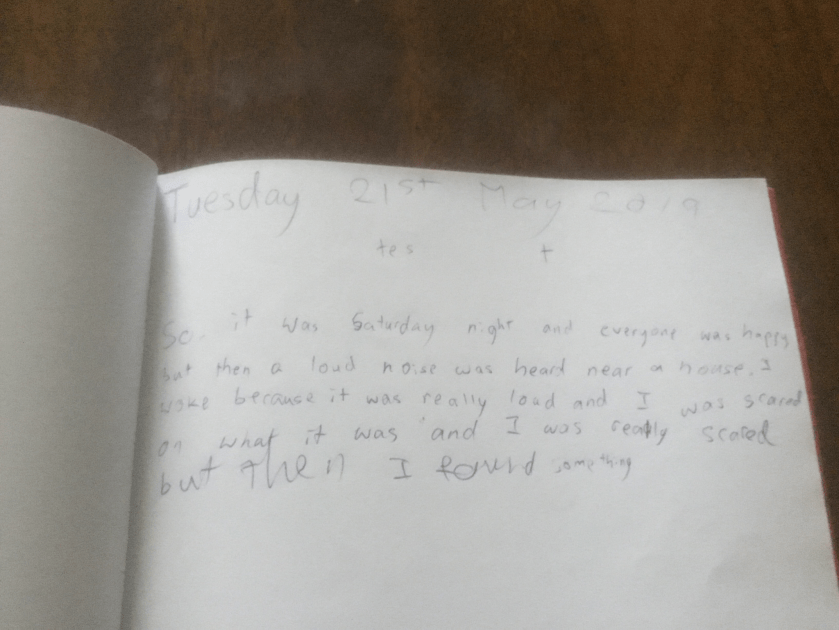 Tuesday 21st May 2019
tes t
So. it was Saturday night and everyone was happy
but then a loud noise was heard near a house. I
woke because it was really loud and I was scared
on what it was and I was really scared
but then I found something